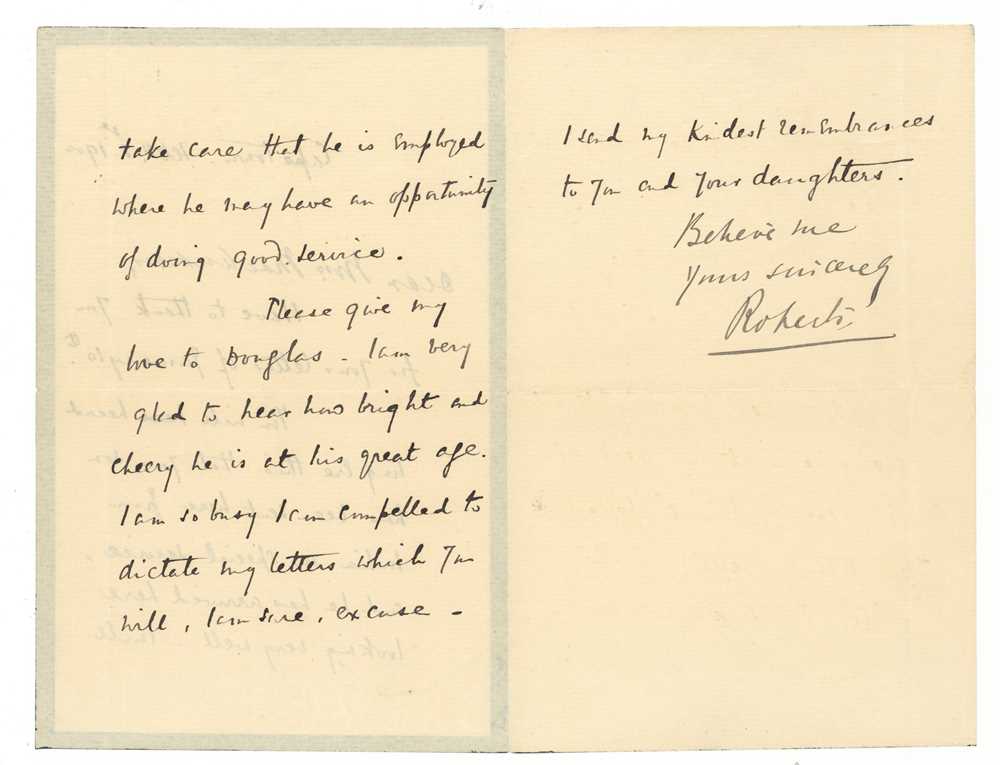 take care that he is employed
where he may have an opportunity
of doing good service.
Please give my
love to Douglas - I am very
glad to hear how bright and
cheery he is at his great age.
I am so busy I am compelled to
dictate my letters which you
will, I am sure, excuse -
I send my kindest remembrances
to you and your daughters.
Believe me
Yours sincerely
Roberts